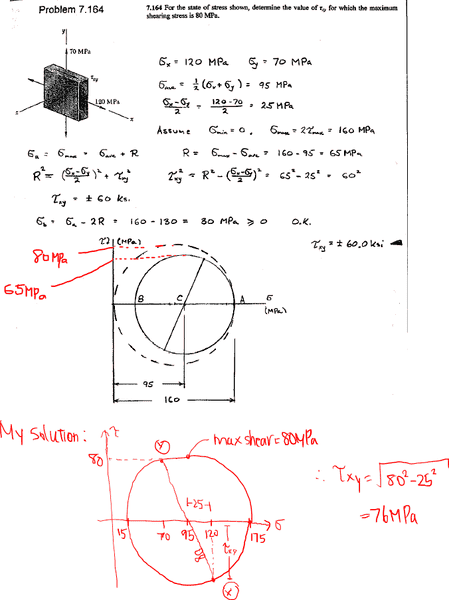 Problem 7.164
7.164 For the state of stress shown, determine the value of τxy for which the maximum
shearing stress is 80 MPa.
y
70 MPa
τxy
120 MPa
z
x
σx = 120 MPa σy = 70 MPa
σave = ½(σx+σy) = 95 MPa
(σx-σy)/2 = (120-70)/2 = 25 MPa
Assume σmin = 0, σmax = 2τmax = 160 MPa
σa = σmax = σave + R R = σmax - σave = 160-95 = 65 MPa
R² = ((σx-σy)/2)² + τxy² τxy² = R² - ((σx-σy)/2)² = 65² - 25² = 60²
τxy = ± 60 ksi
σb = σa - 2R = 160 - 130 = 30 MPa ≥ 0 O.K.
τxy = ± 60.0 ksi ◄
(MPa)
80MPa
65MPa
B C A σ
(MPa)
95
160
My solution:
τ
Y
max shear = 80MPa
80
∴ τxy = √80²-25²
= 76MPa
25
15 70 95 120 175 σ
80
τxy
X